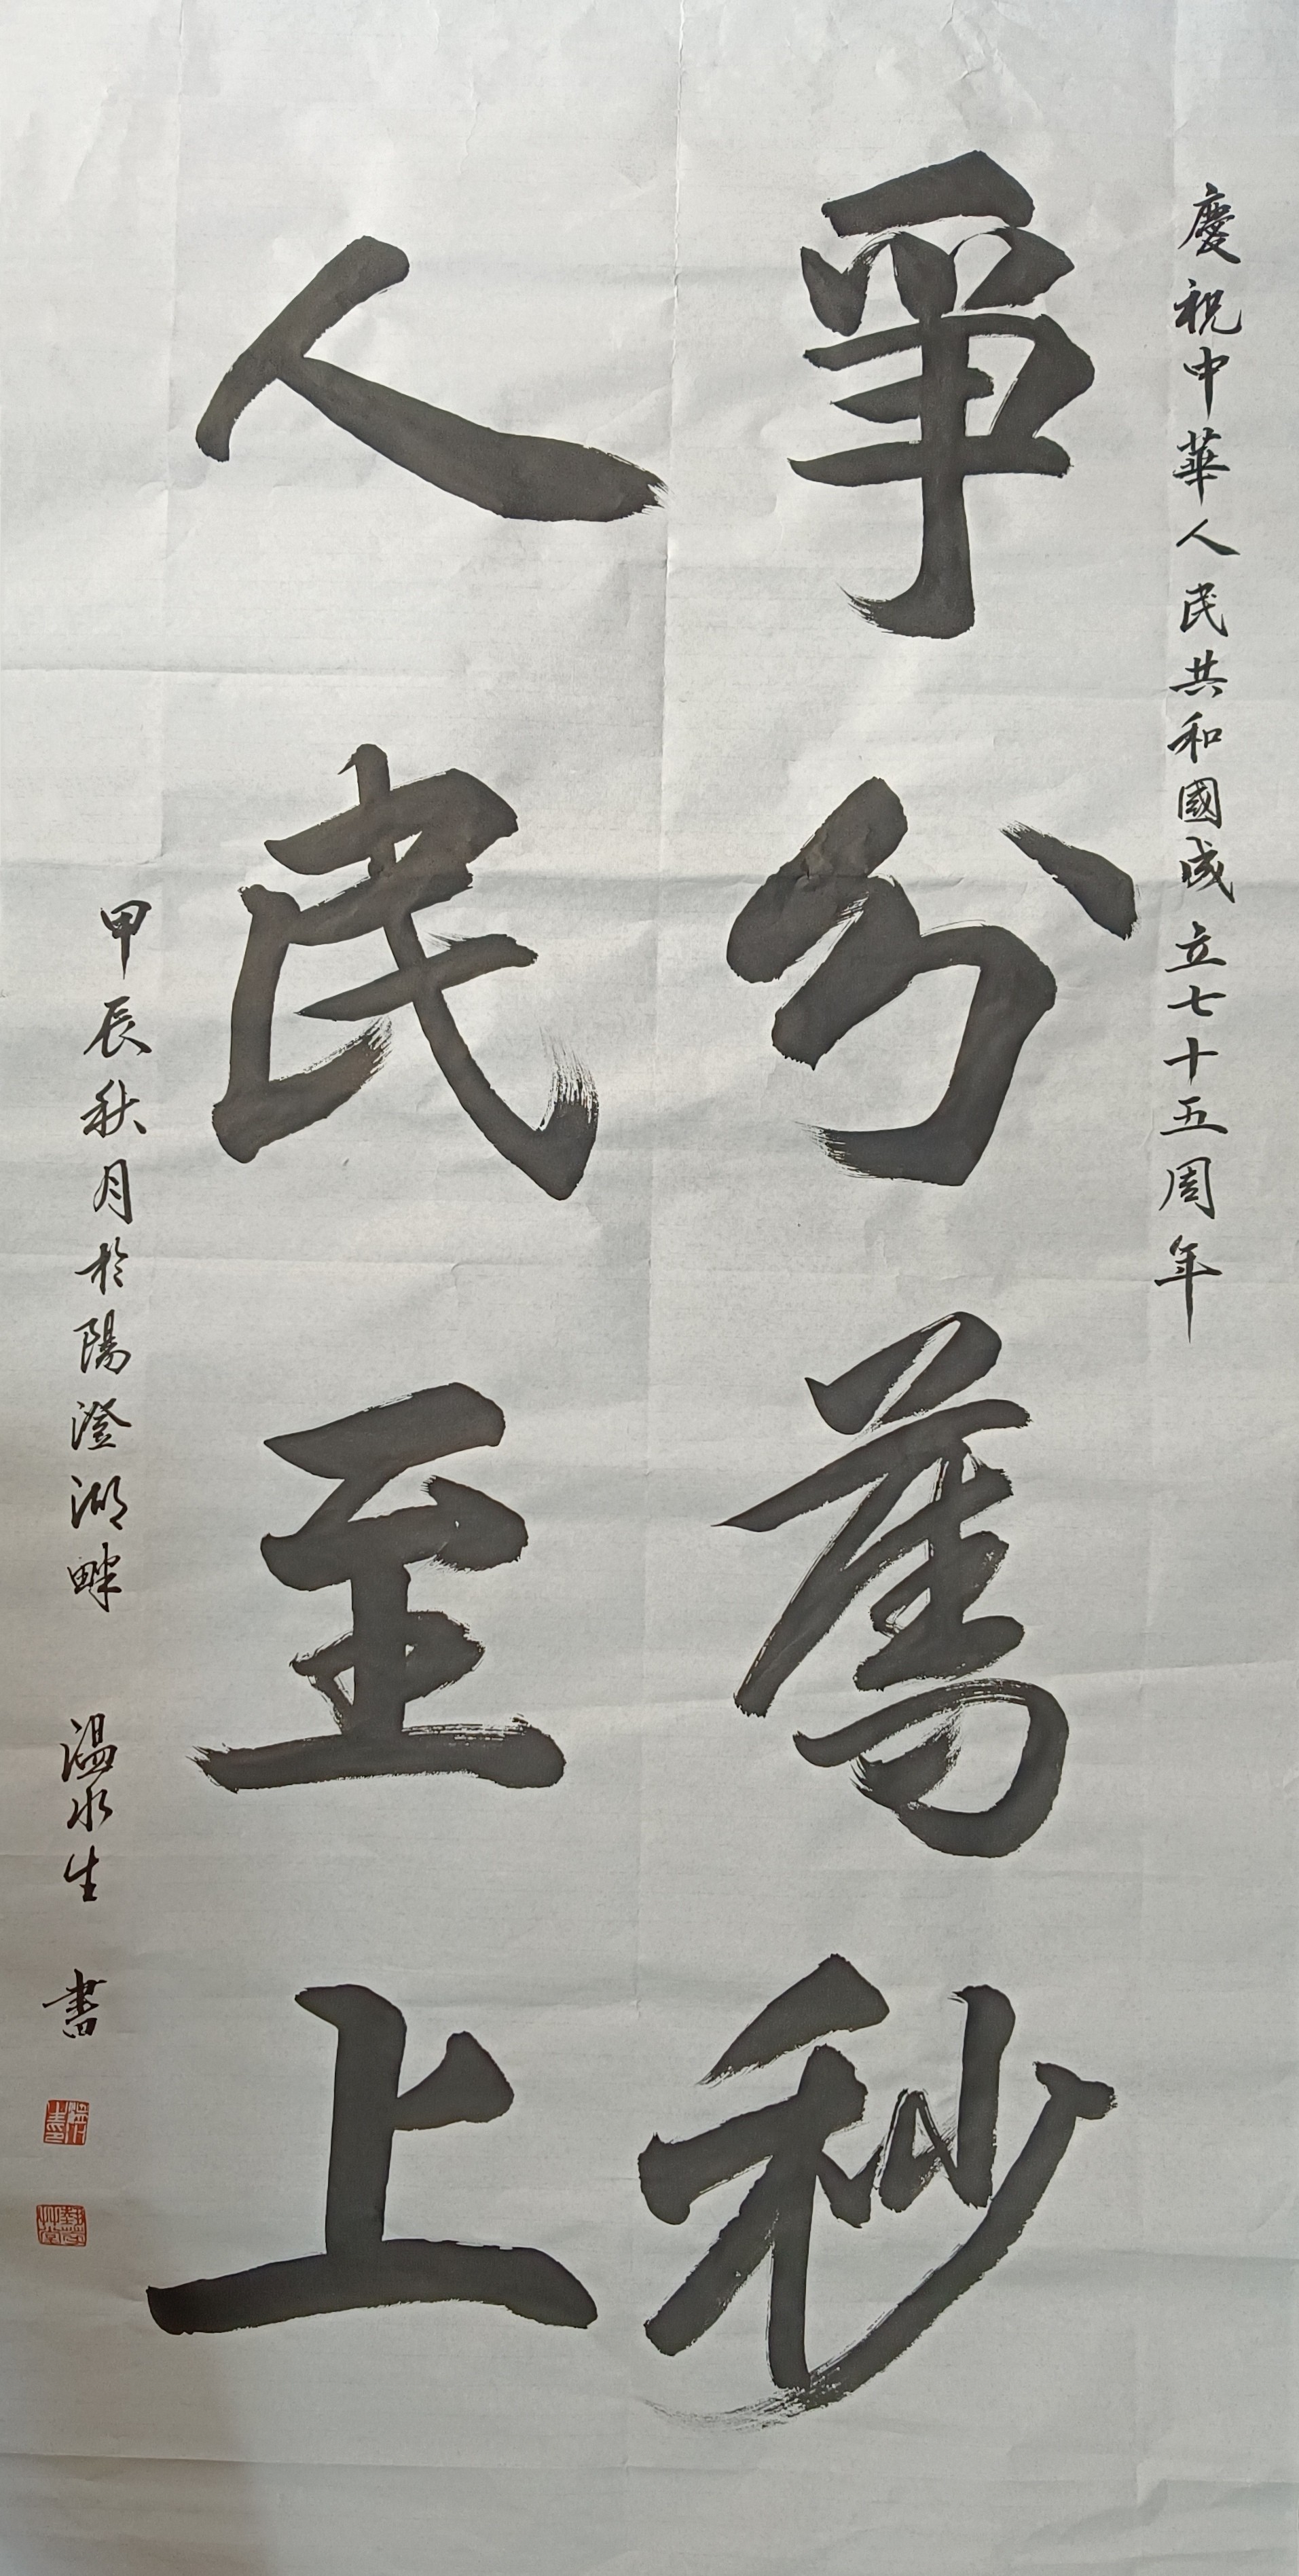 慶祝中華人民共和國成立七十五周年
爭分奪秒
人民至上
甲辰秋月於陽澄湖畔 溫水生 書